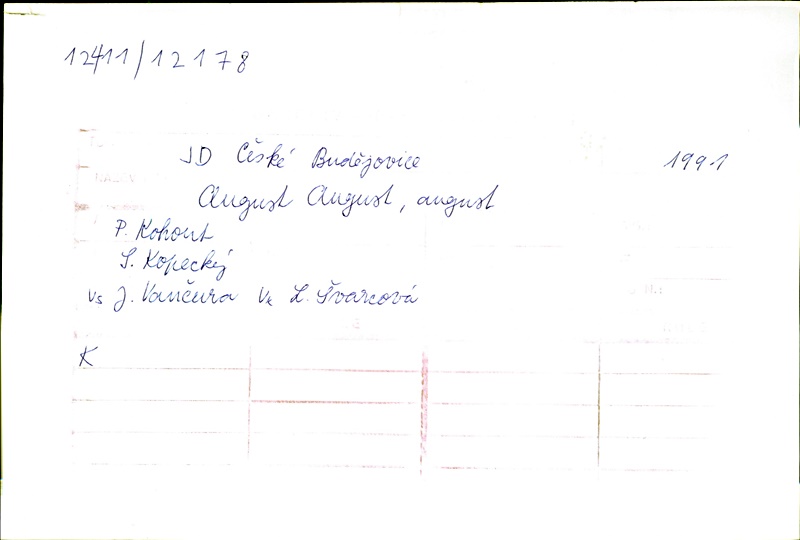 12411/12178
JD České Budějovice 1991
August August, august
P. Kohout
S. Kopecký
Vs J. Vančura Vk L. Švarcová
K